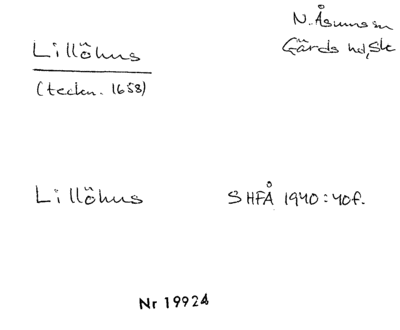 Lillöhus
(teckn. 1658)
N. Åsumssn
Gärds hd, Sk
Lillöhus SHFÅ 1940:40f.
Nr 19924